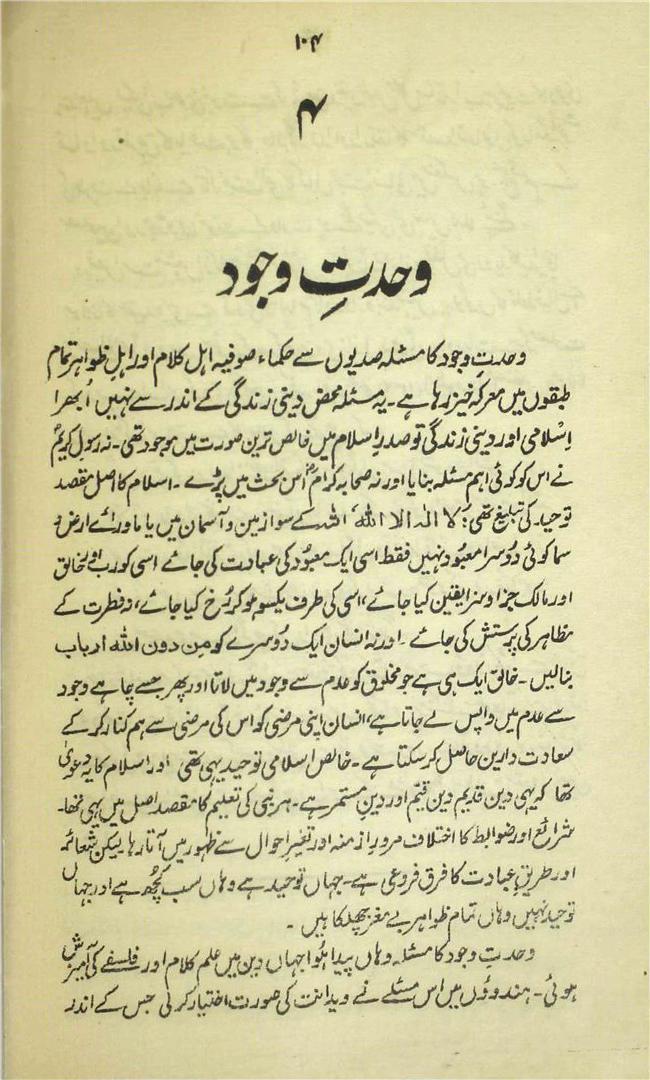 ۱۰۴
۴
وحدتِ وجود
وحدتِ وجود کا مسئلہ صدیوں سے حکماء صوفیہ اہل کلام اور اہلِ ظواہر تمام
طبقوں میں معرکہ خیز رہا ہے۔ یہ مسئلہ محض دینی زندگی کے اندر سے نہیں اُبھرا
اِسلامی اور دینی زندگی تو صدر اسلام میں خالص ترین صورت میں موجود تھی۔ نہ رسول کریمؐ
نے اس کو کوئی اہم مسئلہ بنایا اور نہ صحابہ کرامؓ اس بحث میں پڑے۔ اسلام کا اصل مقصد
توحید کی تبلیغ تھی؛ لا الٰہ الا اللہ، اللہ کے سوا زمین و آسمان میں یا ماورائے ارض و
سما کوئی دُوسرا معبود نہیں فقط اسی ایک معبُود کی عبادت کی جائے اسی کو رب اور خالق
اور مالک جزا و سزا یقین کیا جائے، اسی کی طرف یکسو ہو کر رُخ کیا جائے، نہ فطرت کے
مظاہر کی پرستش کی جائے۔ اور نہ انسان ایک دُوسرے کو من دون اللہ ارباب
بنالیں۔ خالق ایک ہی ہے جو مخلوق کو عدم سے وجود میں لاتا اور پھر جسے چاہے وجود
سے عدم میں واپس لے جاتا ہے، انسان اپنی مرضی کو اس کی مرضی سے ہم کنار کر کے
سعادت دارین حاصل کر سکتا ہے۔ خالص اسلامی توحید یہی تھی اور اسلام کا یہ دعویٰ
تھا کہ یہی دین قدیم دین قیّم اور دینِ مستمر ہے۔ ہر نبی کی تعلیم کا مقصد اصل میں یہی تھا۔
شرائع اور ضوابط کا اختلاف مرورِ ازمنہ اور تغیرِ احوال سے ظہور میں آتا رہا لیکن شعائر
اور طریقِ عبادت کا فرق فروعی ہے۔ جہاں توحید ہے وہاں سب کچُھ ہے اور جہاں
توحید نہیں وہاں تمام ظواہر بے مغز چھلکا ہیں۔
وحدتِ وجود کا مسئلہ وہاں پیدا ہُوا جہاں دین میں علم کلام اور فلسفے کی آمیزش
ہوئی۔ ہندوؤں میں اس مسئلے نے ویدانت کی صورت اختیار کر لی جس کے اندر